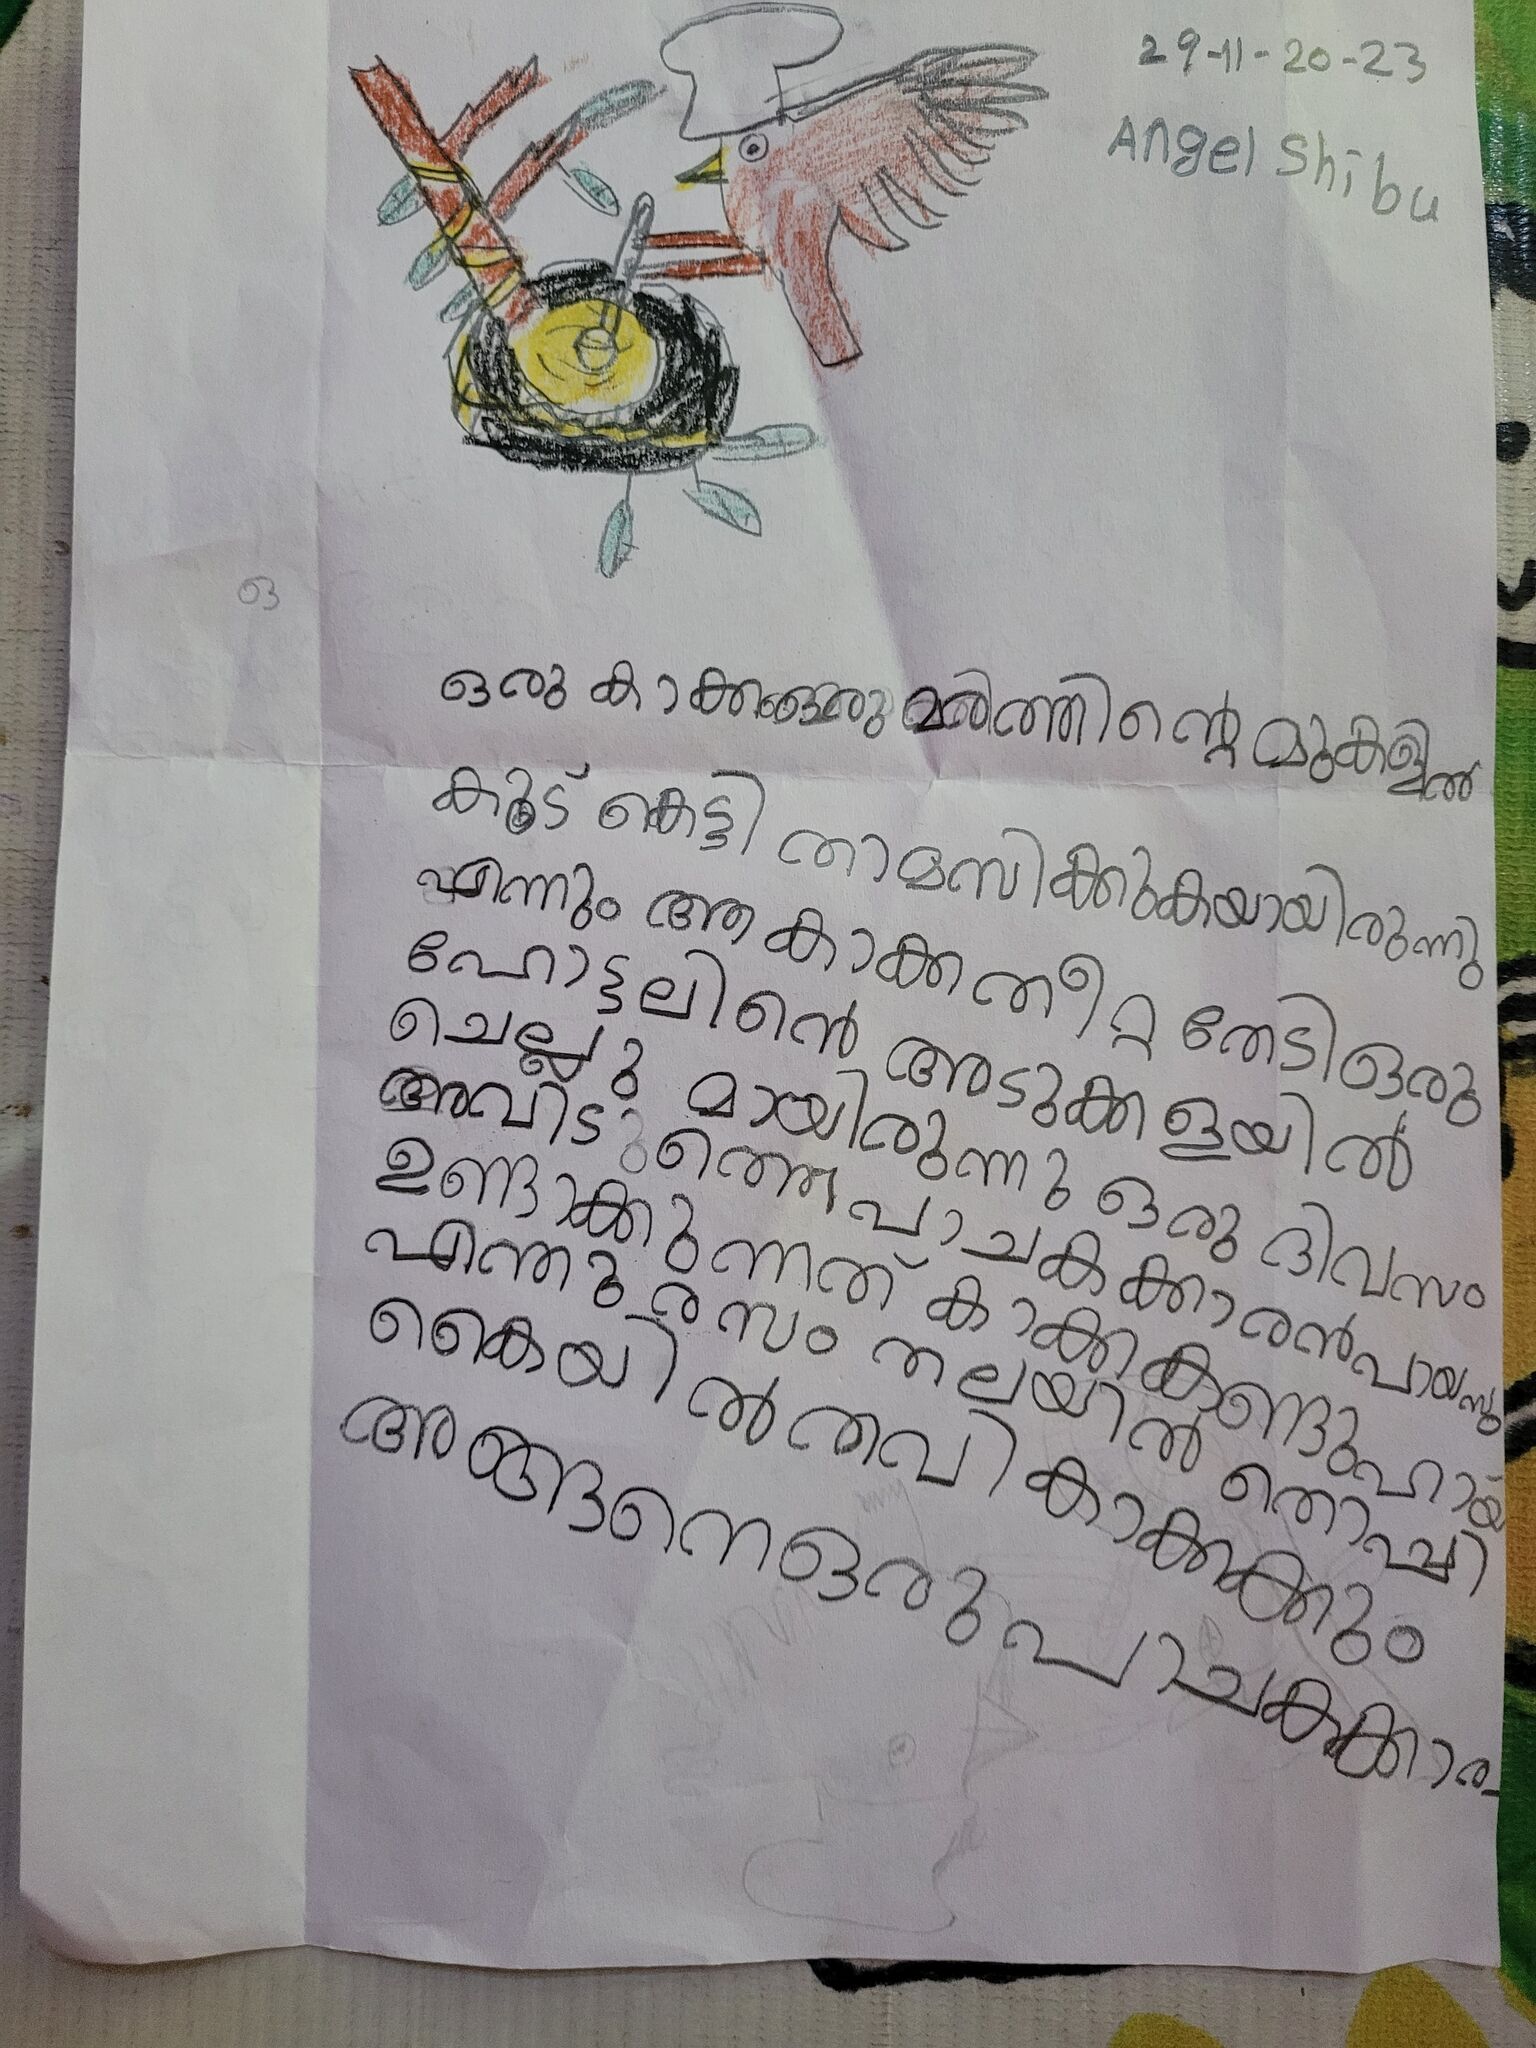 29-11-20-23
Angel Shibu
ഒ
ഒരു കാക്ക ഒരു മരത്തിന്റെ മുകളിൽ
കൂട് കെട്ടി താമസിക്കുകയായിരുന്നു
എന്നും ആ കാക്ക തീറ്റ തേടി ഒരു
ഹോട്ടലിൻെ അടുക്കളയിൽ
ചെല്ലു മായിരുന്നു ഒരു ദിവസം
അവിടുത്തെ പാചകക്കാരൻ പായസം
ഉണ്ടാക്കുന്നത് കാക്ക കണ്ടു ഹായ്
എന്തു രസം തലയിൽ തൊപ്പി
കൈയിൽ തവി കാക്കക്കും
അങ്ങനെ ഒരു പാചകക്കാര